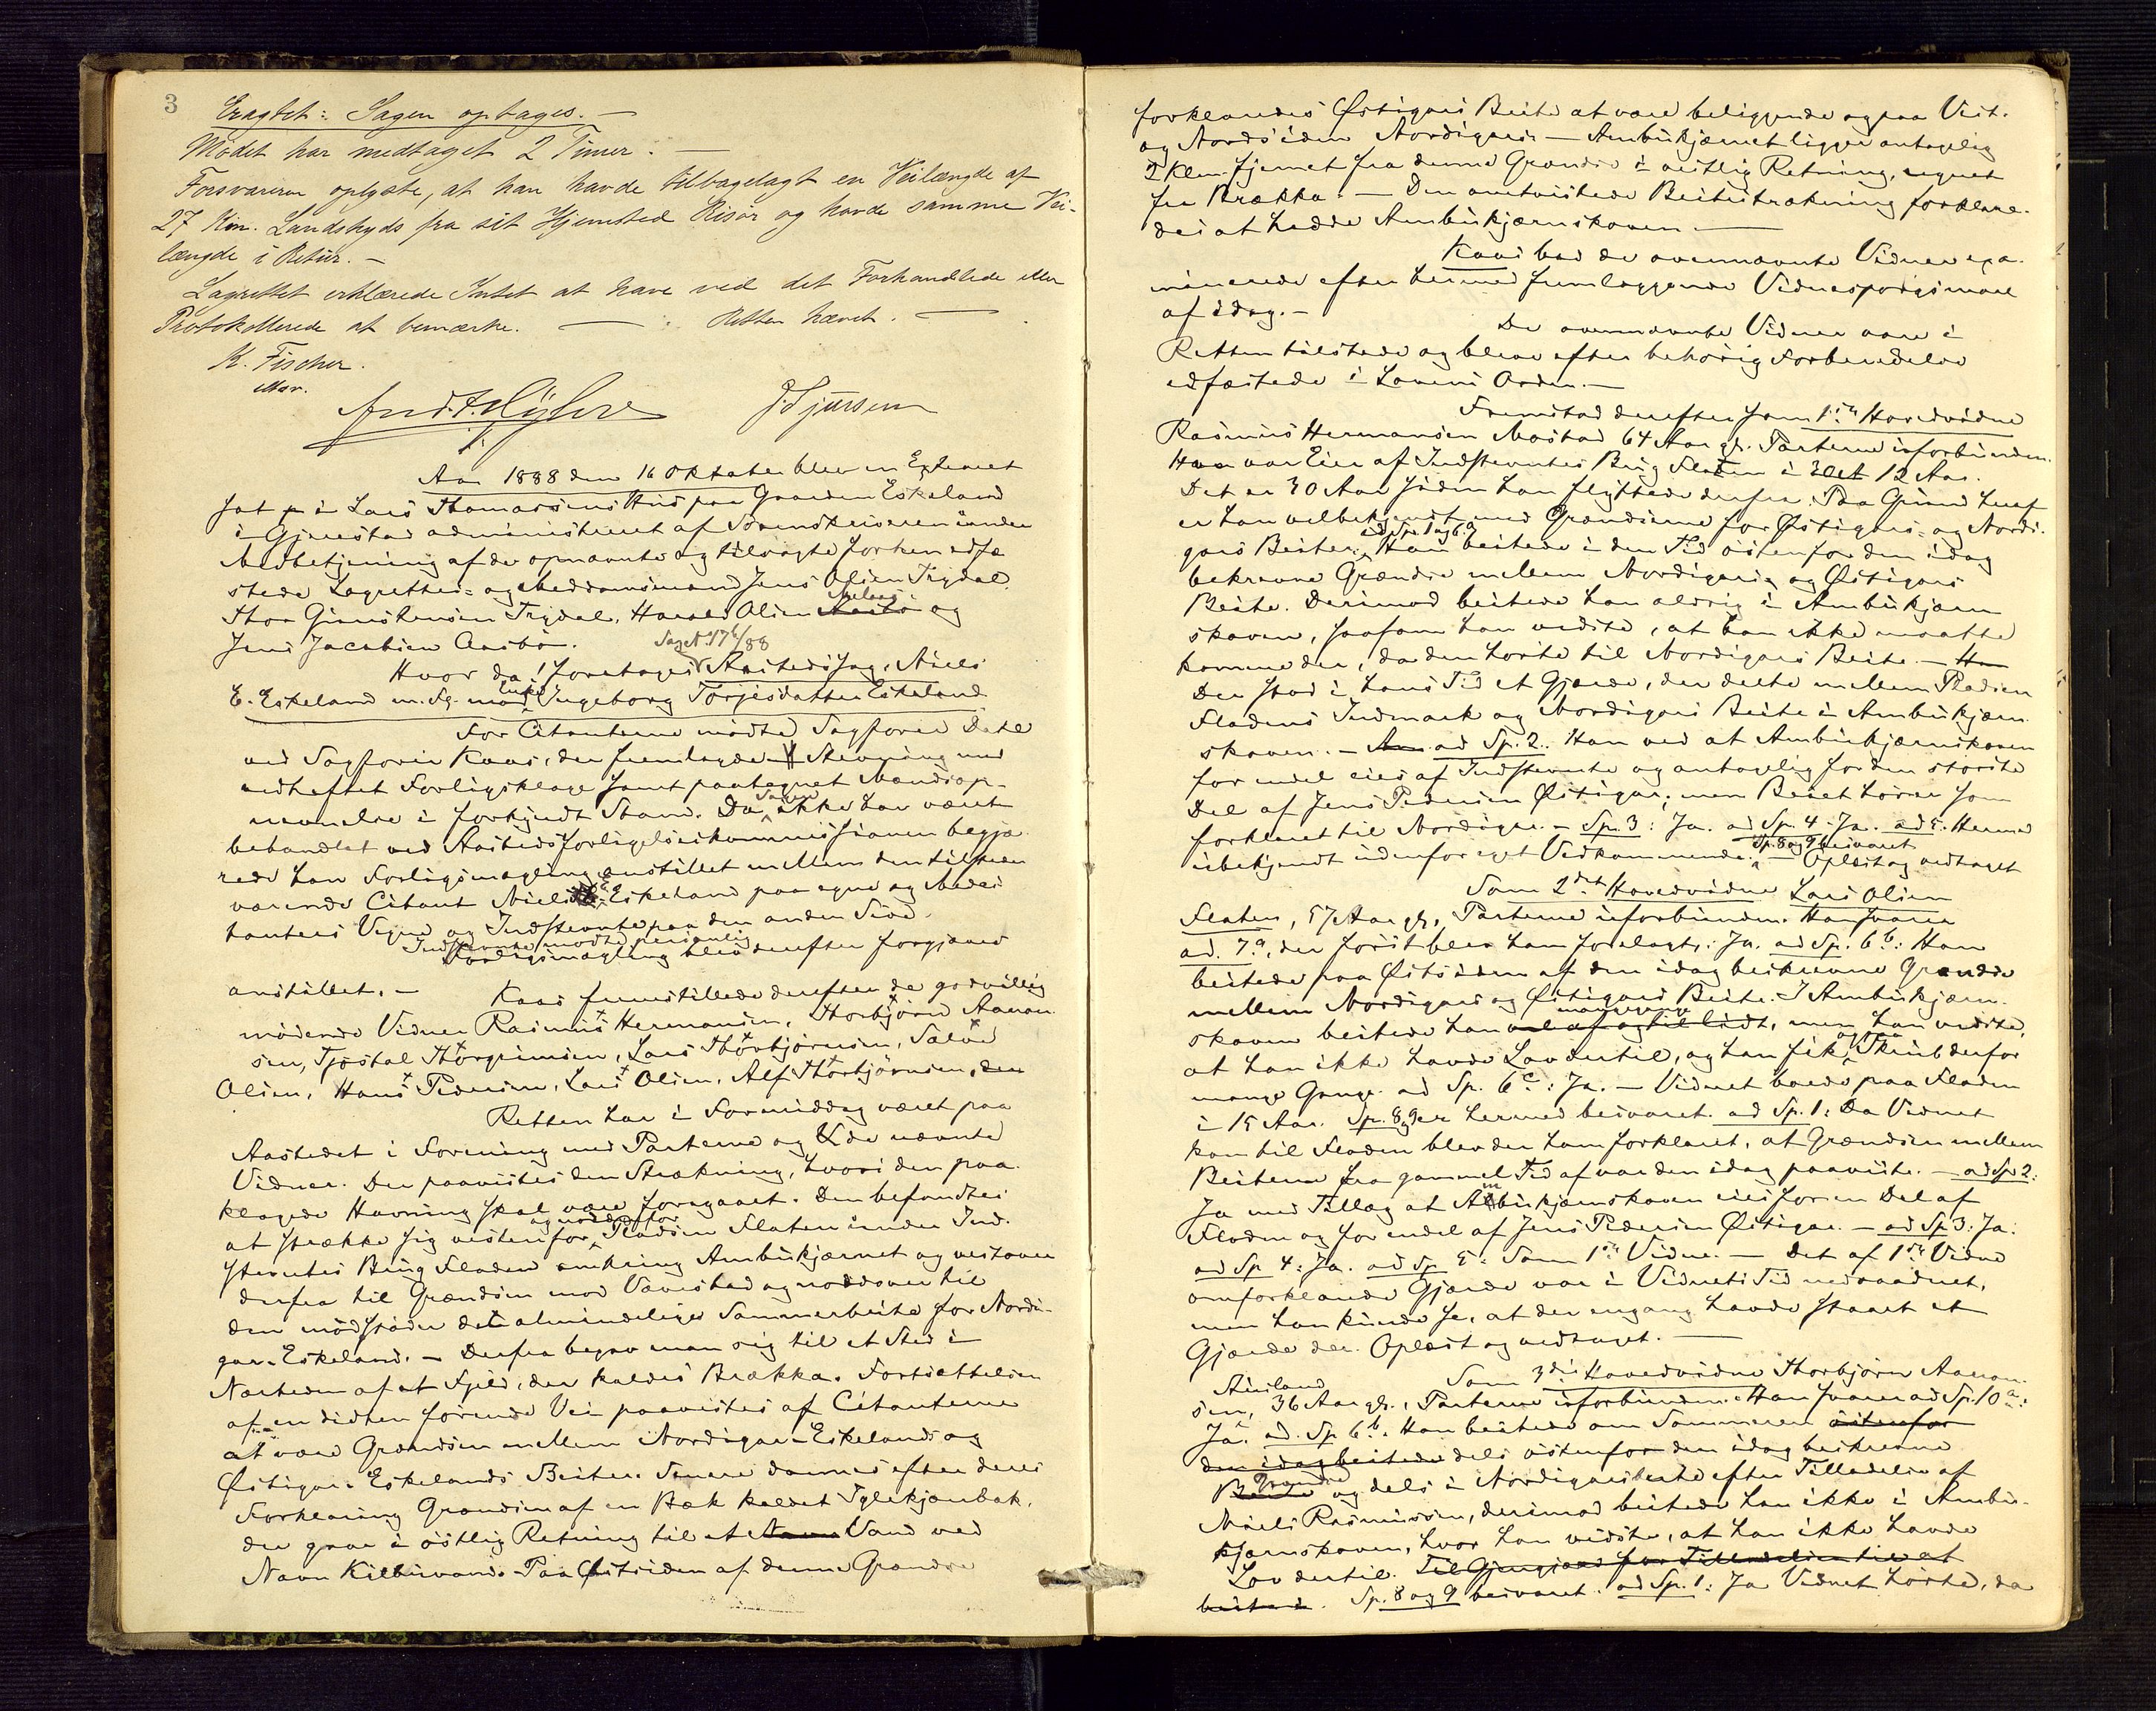 3
Eragtet: Sagen optages. —
Mødet har medtaget 2 Timer. —
Forsvareren oplyste, at han havde tilbagelagt en Veilængde af
27 Km. Landskyds fra sit Hjemsted Risør og havde samme Vei-
længde i Retur. —
Lagrettet erklærede Intet at have ved det Forhandlede eller
Protokollerede at bemærke. — Retten hævet. —
K. Fischer.
J. Sjursen
Aar 1888 den 16 Oktober blev en Extraret
sat i Lars Thomassens Hus paa Gaarden Eskeland
i Gjerestad administreret af Sorenskriveren under
Medbetjening af de opnævnte og tilvagte forhen edfæ
stede Lagrettes- og Meddomsmænd Jens Olsen Trydal
Thor Gunstensen Trydal, Harald Olsen og
Jens Jacobsen Aasbø.
Saget 17/88
Hvor da! foretoges Aastedssag, Niels
E. Eskeland m. fl. mod Enke Ingeborg Torjesdatter Eskeland
For Citanterne mødte Sagfører Dahl
ved Sagfører Kaas, der fremlagde Stevning med
vedheftet Forligsklage samt paategnet Mændsop-
nævnelse i forkyndt Stand. Da Sagen ikke har været
behandlet ved Aastedsforligelseskommissionen begjæ
rede han Forligsmægling anstillet mellem den tilstede
værende Citant Niels E. Eskeland paa egne og Medci
tanters Vegne og Indstevnte paa den anden Side.
Indstevnte mødte personlig
Forligsmægling blev derefter forgjæves
anstillet. —
Kaas fremstillede derefter de godvillig
mødende Vidner Rasmus Hermansen, Thorbjørn Aanon
sen, Tjøstol Thorgrimsen, Lars Thorbjørnsen, Salve
Olsen, Hans Pedersen, Lars Olsen, Alf Thorbjørnsen, den
Retten har i Formiddag været paa
Aastedet i Forening med Parterne og de nævnte
Vidner. Der paavistes den Strækning, hvori den paa
klagede Havning skal være foregaaet. Den befandtes
at strække sig vestenfor og nordenfor Pladsen Flaten under Ind-
stevntes Brug Fladen omkring Ambukjærnet og vestover
derfra til Grændsen mod Vævestad og nordover til
den mødstøder det almindelige Sommerbeite for Nordi-
gar-Eskeland. — Derfra begav man sig til et Sted i
Nærheden af et Fjeld, der kaldes Brækka. Fortsættelsen
af en didhen førende Vei paavistes af Citanterne
at være Grændsen mellem Nordigar-Eskelands og
Østigar-Eskelands Beiter. Senere dannes efter deres
Forklaring Grændsen af en Bæk kaldet Iglekjærnbæk,
der gaar i østlig Retning til et Navn Vand ved
Navn Kilbuvand. Paa Østsiden af denne Grændse
forklaredes Østigars Beite at være beliggende og paa Vest-
og Nordsiden Nordigars. — Ambukjærnet ligger antagelig
2 Klm. fjernet fra denne Grændse i vestlig Retning, regnet
fra Brækka. — Den omtvistede Beitestrækning forklare-
des at hedde Ambukjærnskoven. —
Kaas bad de ovennævnte Vidner exa-
minerede efter hermed fremlæggende Vidnespørgsmaal
af idag. —
De ovennævnte Vidner vare i
Retten tilstede og bleve efter behørig Forberedelse
edfæstede i Lovens Orden. —
Fremstod derefter som 1ste Hovedvidne
Rasmus Hermansen Mostad 64 Aar gl. Parterne uforbunden.
Han var Eier af Indstevntes Brug Fladen i idet 12 Aar.
Det er 30 Aar siden han flyttede derfra. Paa Grund heraf
er han velbekjendt med Grændserne for Østigars- og Nordi-
gars Beiter. ad Sp. 1 og 6a Han beitede i den Tid østenfor den idag
bekrevne Grændse mellem Nordigars og Østigars
Beite. Derimod beitede han aldrig i Ambukjærn
skoven, saasom han vidste, at han ikke maatte
komme der, da den hørte til Nordigars Beite. — Han
Der stod i hans Tid et Gjærde, der delte mellem Pladsen
Fladens Indmark og Nordigars Beite i Ambukjærn-
skoven. — ad Sp. 2. Han ved at Ambukjærnskoven
for endel eies af Indstevnte og antagelig for den største
Del af Jens Pedersen Østigar; men Beitet hører som
forklaret til Nordigar. — Sp. 3: Ja. ad Sp. 4: Ja. ad 5. Hermed
ubekjendt udenfor eget Vedkommende. Sp. 8 og 9 besvaret — Oplæst og vedtaget
Som 2det Hovedvidne Lars Olsen
Flaten, 57 Aar gl., Parterne uforbunden. Han svarer
ad 7a, der først blev ham forelagt: Ja. ad Sp. 6b: Han
beitede paa Østsiden af den idag beskrevne Grændse
mellem Nordigars og Østigars Beite. I Ambukjærn-
skoven beitede han vel af og til lidt, men han vidste,
at han ikke havde Lov dertil, og han fik ogsaa Skrub derfor
mange Gange. ad Sp. 6c: Ja. — Vidnet boede paa Fladen
i 15 Aar. Sp. 8, 9 er hermed besvaret. ad Sp. 1: Da Vidnet
kom til Fladen blev der ham forklaret, at Grændsen mellem
Beiterne fra gammel Tid af var den idag paaviste. — ad Sp 2:
Ja med Tillæg at Ambukjærnskoven eies for en Del af
Fladen og for endel af Jens Pedersen Østigar. — ad Sp 3: Ja.
ad Sp 4: Ja. ad Sp 5: Som 1ste Vidne. — Det af 1ste Vidne
omforklarede Gjærde var i Vidnets Tid nedraadnet,
men han kunde se, at der engang havde staaet et
Gjærde der. Oplæst og vedtaget. —
Som 3die Hovedvidne Thorbjørn Aanon-
sen, 36 Aar gl., Parterne uforbunden. Han svarer ad Sp. 10a:
Ja. ad. Sp 6b. Han beitede om Sommeren østenfor
den idag beitede dels østenfor den idag beskrevne
Beite Grændse og dels i Nordigars beite efter Tilladelse af
Niels Rasmussen, derimod beitede han ikke i Ambu-
kjærnskoven, hvor han vidste, at han ikke havde
Lov dertil. Til Gjengjæld for Tilladelsen til at
beite i. Sp. 8 og 9 besvaret. ad Sp. 1: Ja Vidnet hørte, da